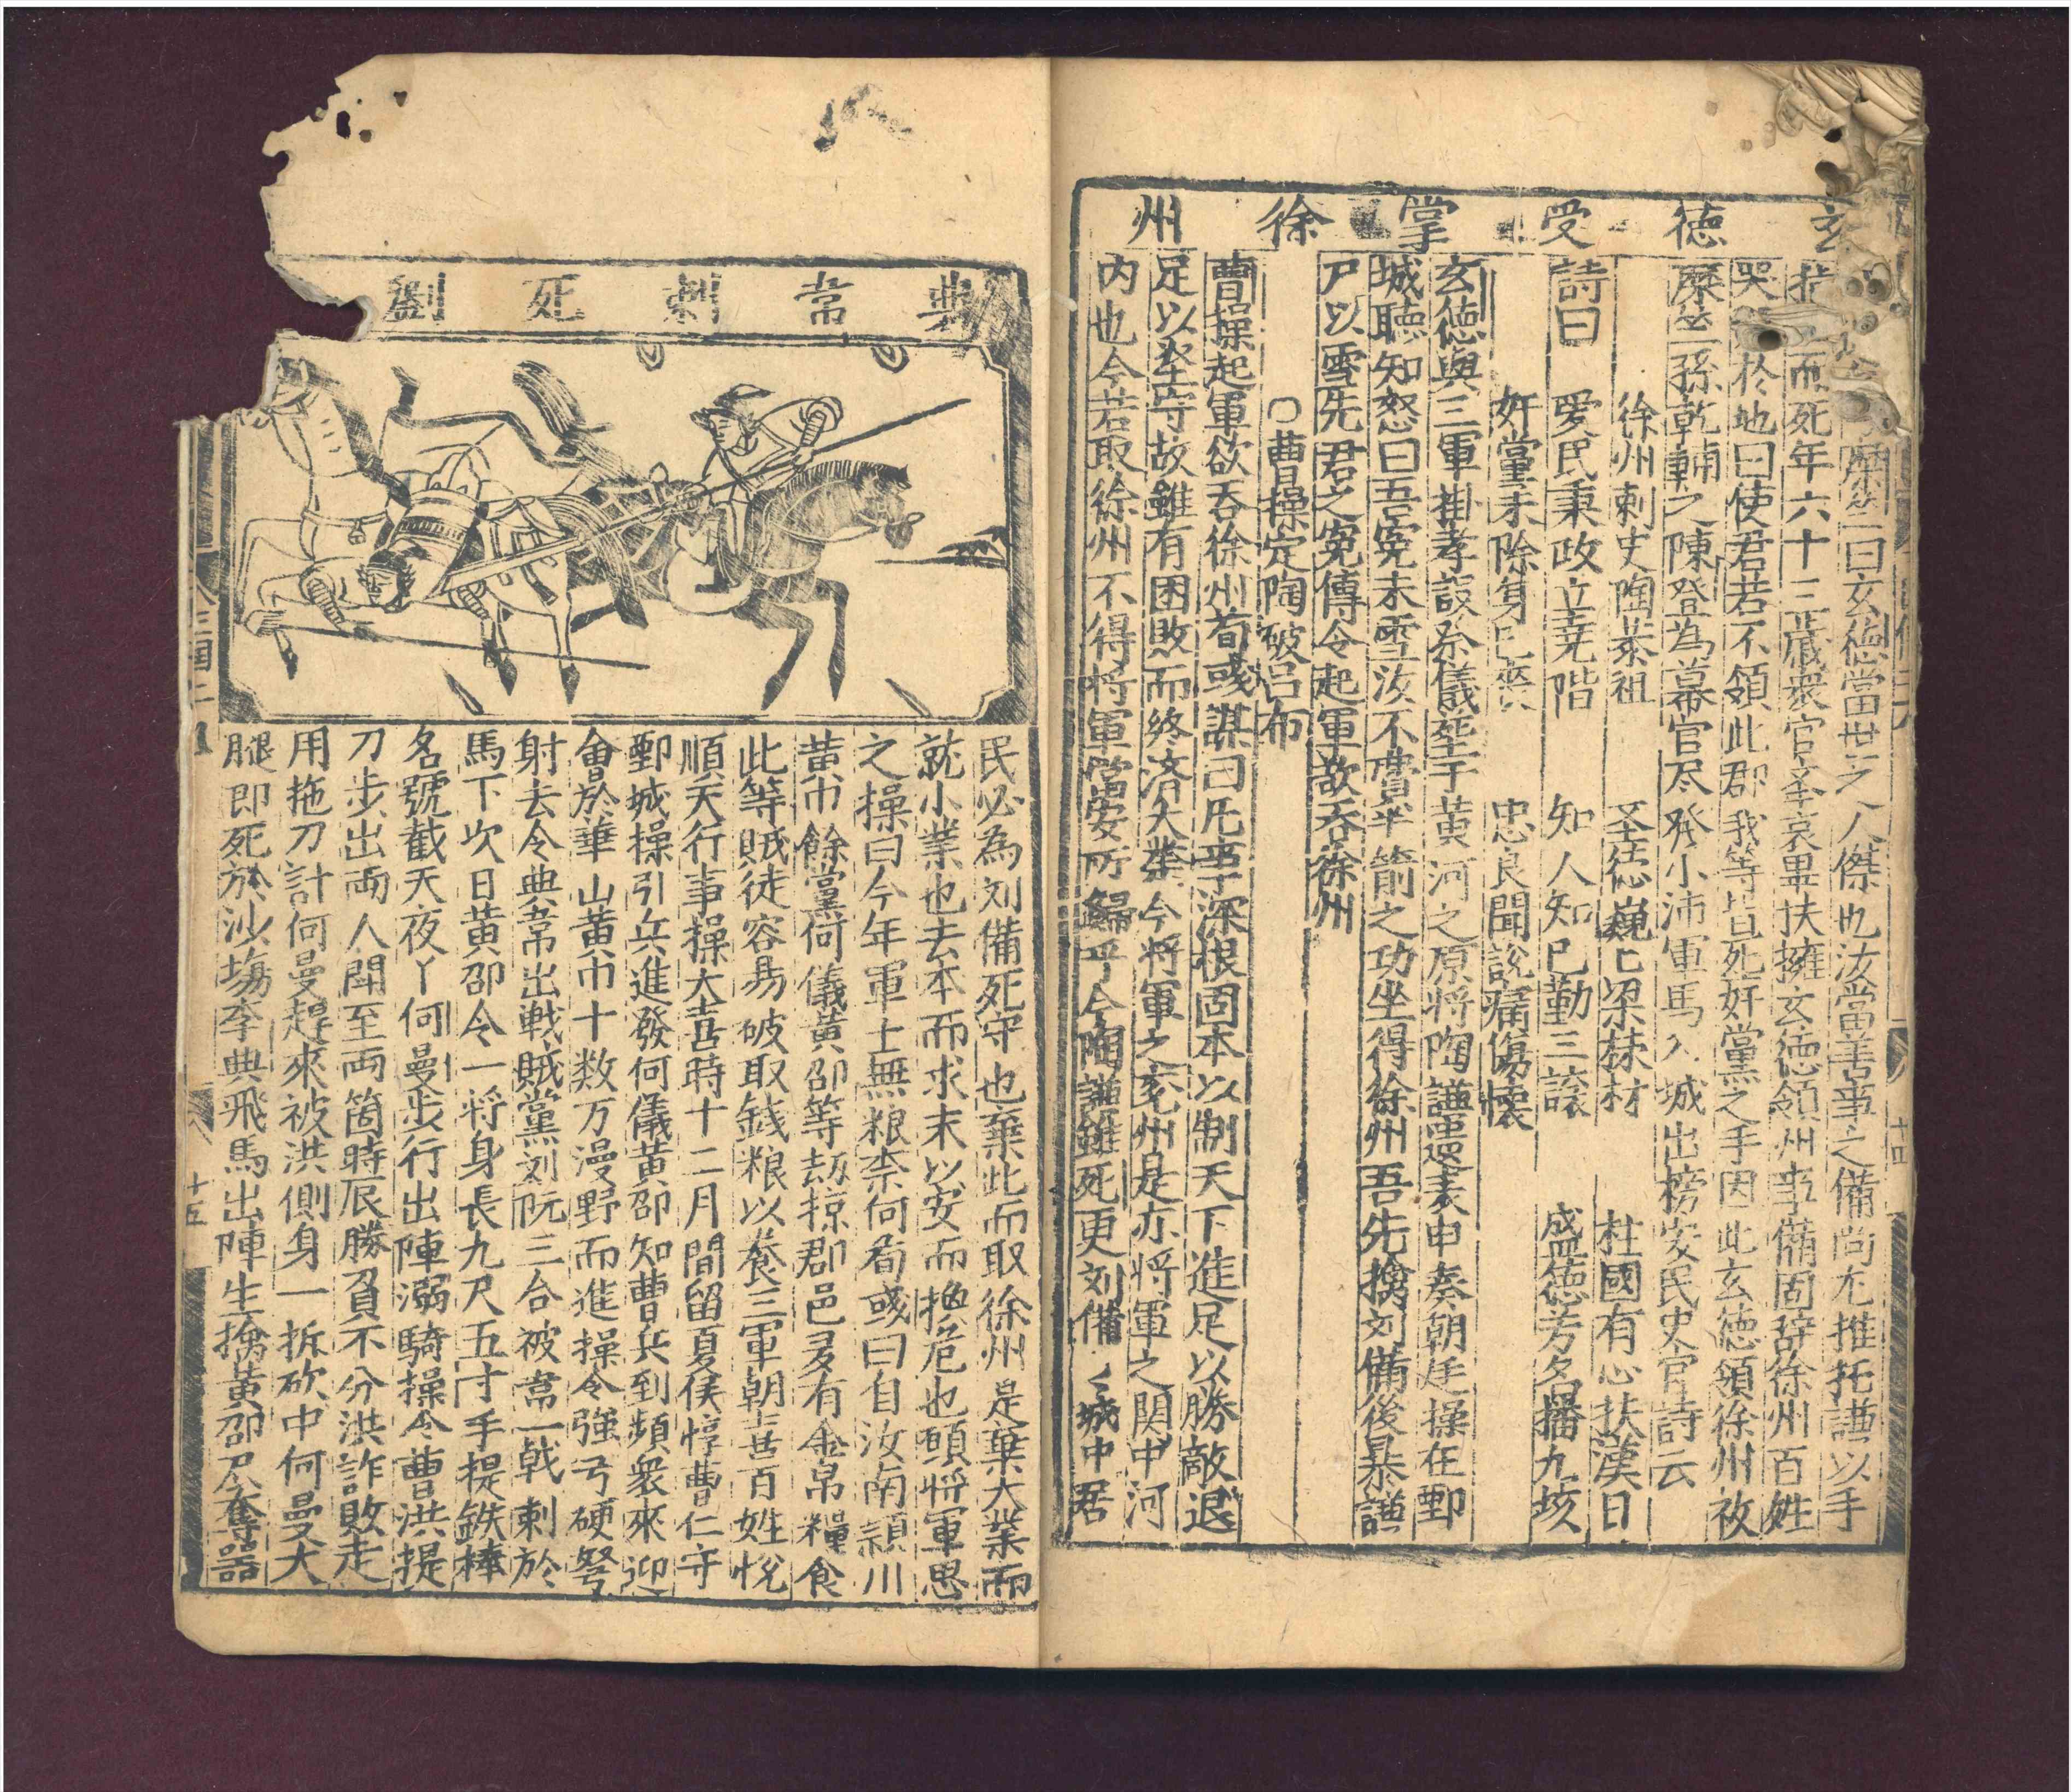 德受掌徐州
糜竺曰玄徳當世之人傑也汝當善事之備尚尤推托謙以手
而死年六十三歲衆官舉哀畢扶擁玄徳領州事備固辞徐州百姓
哭於地曰使君若不領此郡我等皆死奸黨之手因此玄徳領徐州牧
糜竺孫乾輔之陳登為幕官尽發小沛軍馬入城出榜安民史官詩云
徐州刺史陶恭祖 圣徳巍〻梁棟材 柱國有心扶漢日
詩曰 愛民秉政立尭階 知人知已勤三譲 盛徳芳名播九垓
奸黨未除身已 忠良聞說痛傷懐
玄徳與三軍掛孝設祭儀塟于黄河之原将陶謙遺表申奏朝廷操在鄄
城聴知怒曰吾寃未雪汝不費半箭之功坐得徐州吾先擒刘備後暴謙
尸以雪先君之寃傳令起軍欲吞徐州
○曹操定陶破呂布
曹操起軍欲吞徐州荀彧謀曰凡事深根固本以制天下進足以勝敵退
足以坚守故雖有困敗而終済大業今将軍之兖州是亦将軍之関中河
内也今若取徐州不得将軍當安所歸乎今陶謙雖死更刘備〻城中居
典韋刺死劉
民必為刘備死守也棄此而取徐州是棄大業而
就小業也去本而求末以安而換危也願将軍思
之操曰今年軍士無粮柰何荀彧曰自汝南頴川
黄巾餘黨何儀黄卲等劫掠郡邑多有金帛糧食
此等賊徒容易破取銭粮以養三軍朝喜百姓悅
順天行事操大喜時十二月間留夏侯惇曹仁守
鄄城操引兵進發何儀黄卲知曹兵到頻衆來迎
會於華山黄巾十数万漫野而進操令強弓硬弩
射去令典韋出戦賊黨刘阮三合被韋一戟刺於
馬下次日黄卲令一将身長九尺五寸手提鉄棒
名號截天夜丫何曼步行出陣溺騎操令曹洪提
刀步出両人閗至両箇時辰勝負不分洪詐敗走
用拖刀計何曼趕來被洪側身一拆砍中何曼大
腿即死於沙塲李典飛馬出陣生擒黄卲尽奪器
三国二
十四
十五